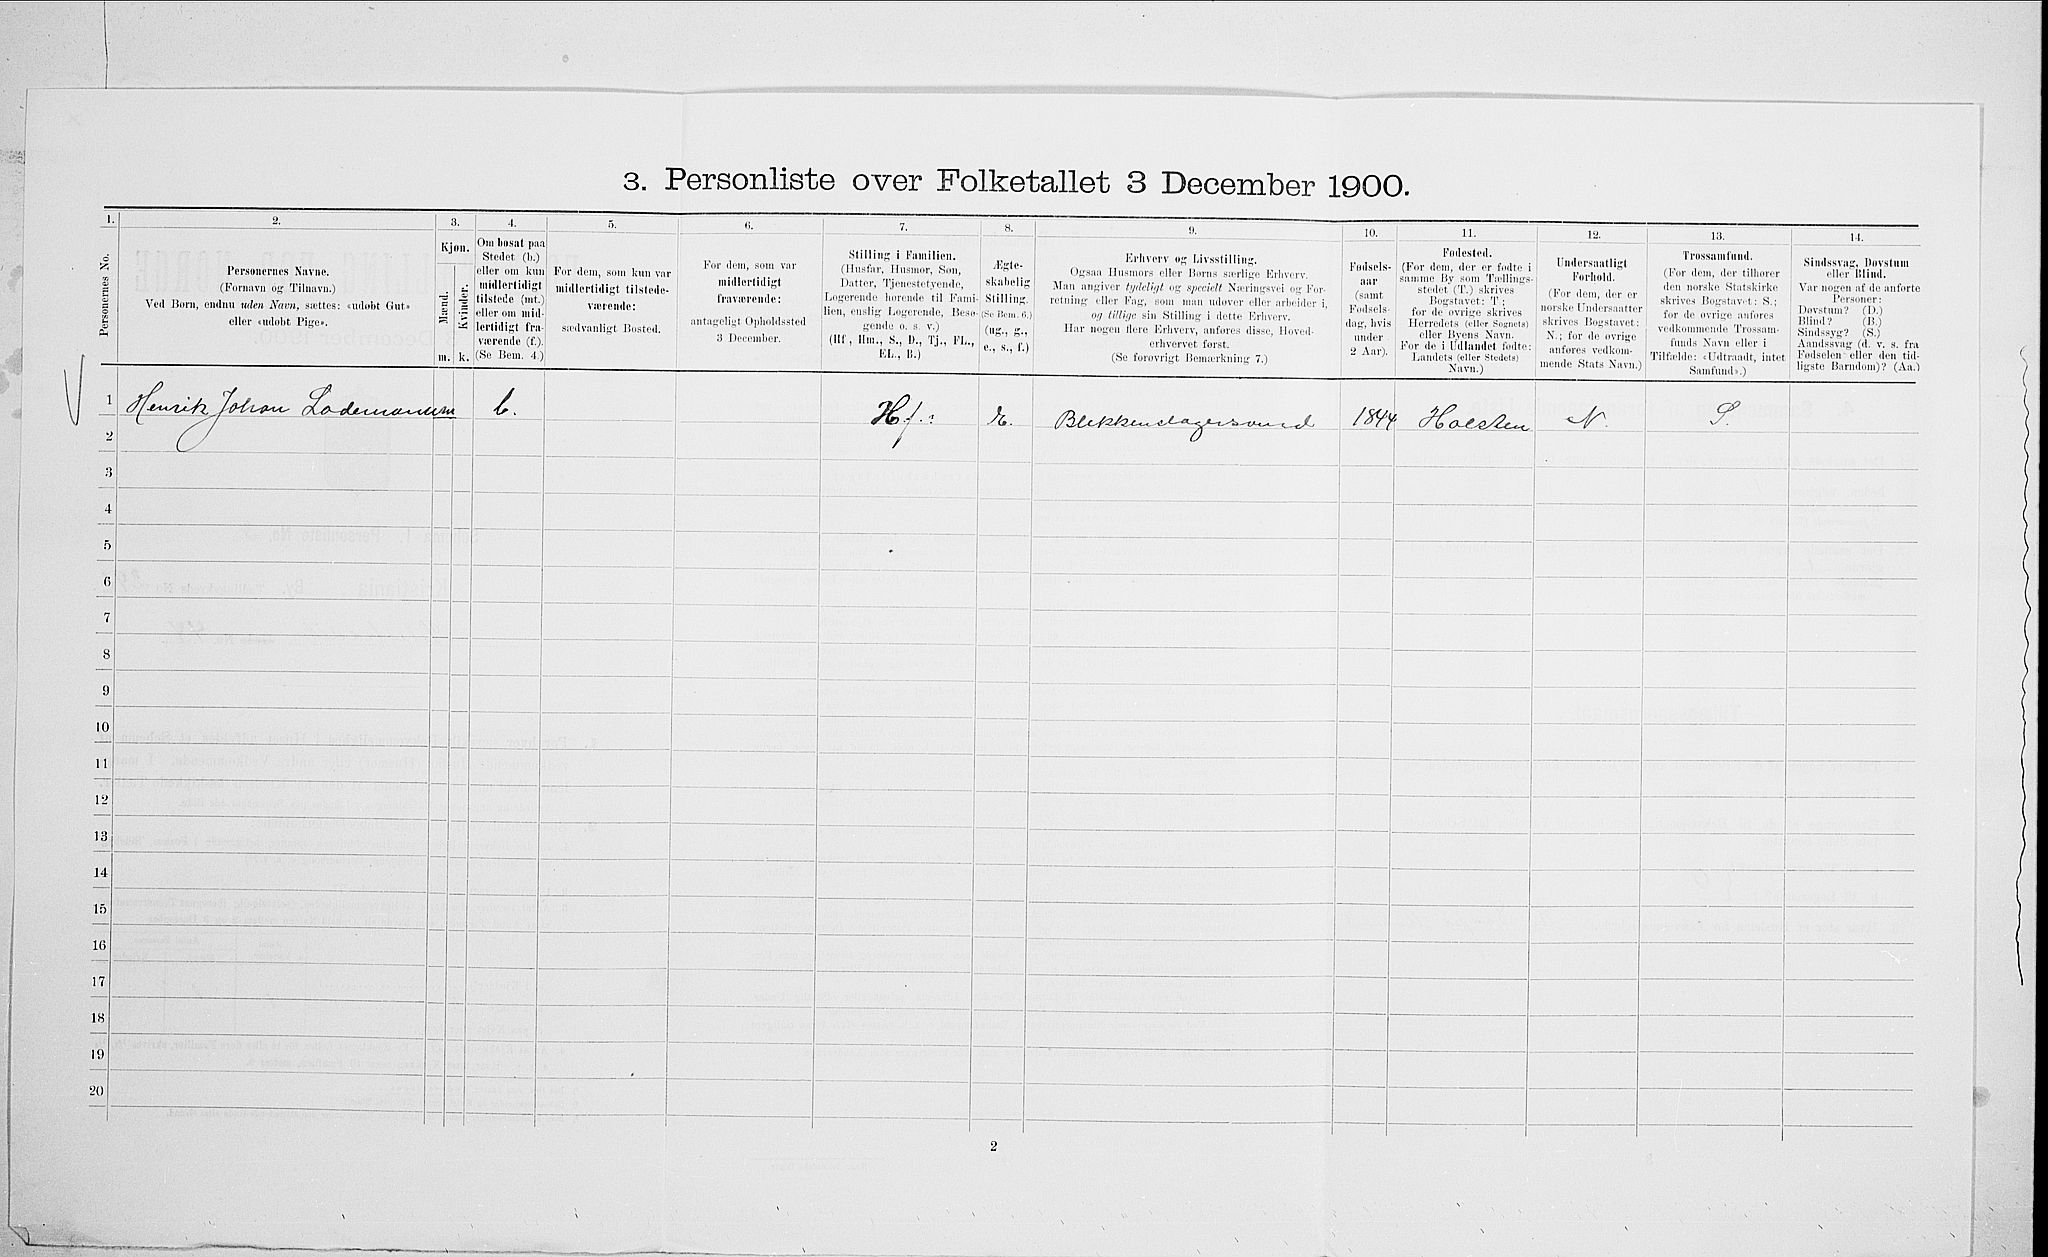 3. Personliste over Folketallet 3 December 1900.
1. 2. 3. 4. 5. 6. 7. 8. 9. 10. 11. 12. 13. 14.
Personernes No.
Personernes Navne.
(Fornavn og Tilnavn.)
Ved Børn, endnu uden Navn, sættes: «udøbt Gut»
eller «udøbt Pige».
Kjøn.
Mænd.
Kvinder.
m. k.
Om bosat paa
Stedet (b.)
eller om kun
midlertidigt
tilstede (mt.)
eller om mid-
lertidigt fra-
værende (f.).
(Se Bem. 4.)
For dem, som kun var
midlertidigt tilstede-
værende:
sædvanligt Bosted.
For dem, som var
midlertidigt
fraværende:
antageligt Opholdssted
3 December.
Stilling i Familien.
(Husfar, Husmor, Søn,
Datter, Tjenestetyende,
Logerende hørende til Fami-
lien, enslig Logerende, Besø-
gende o. s. v.)
(Hf, Hm., S., D., Tj., FL.,
EL., B.)
Ægte-
skabelig
Stilling.
(Se Bem. 6.)
(ug., g.,
e., s., f.)
Erhverv og Livsstilling.
Ogsaa Husmors eller Børns særlige Erhverv.
Man angiver tydeligt og specielt Næringsvei og For-
retning eller Fag, som man udøver eller arbeider i,
og tillige sin Stilling i dette Erhverv.
Har nogen flere Erhverv, anføres disse, Hoved-
erhvervet først.
(Se forøvrigt Bemærkning 7.)
Fødsels-
aar
(samt
Fødsels-
dag, hvis
under
2 Aar).
Fødested.
(For dem, der er fødte i
samme By som Tællings-
stedet (T.) skrives
Bogstavet: T;
for de øvrige skrives
Herredets (eller Sognets)
eller Byens Navn.
For de i Udlandet fødte:
Landets (eller Stedets)
Navn.)
Undersaatligt
Forhold.
(For dem, der er
norske Undersaatter
skrives Bogstavet:
N.; for de øvrige
anføres vedkom-
mende Stats Navn.)
Trossamfund.
(For dem, der tilhører
den norske Statskirke
skrives Bogstavet: S.;
for de øvrige anføres
vedkommende Trossam-
funds Navn eller i
Tilfælde: «Udtraadt, intet
Samfund».)
Sindssvag, Døvstum
eller Blind.
Var nogen af de anførte
Personer:
Døvstum? (D.)
Blind? (B.)
Sindssyg? (S.)
Aandssvag (d. v. s. fra
Fødselen eller den tid-
ligste Barndom)? (Aa.)
1 Henrik Johan Lademann m b. Hf. e. Blikkenslagersvend 1844 Holsten N. S.
2
3
4
5
6
7
8
9
10
11
12
13
14
15
16
17
18
19
20
2